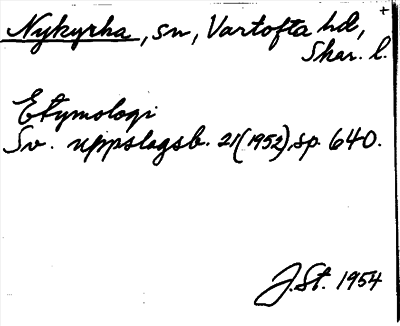 Nykyrka, sn, Vartofta hd,
Skar. l.
Etymologi
Sv. uppslagsb. 21(1952), sp. 640.
J. St. 1954